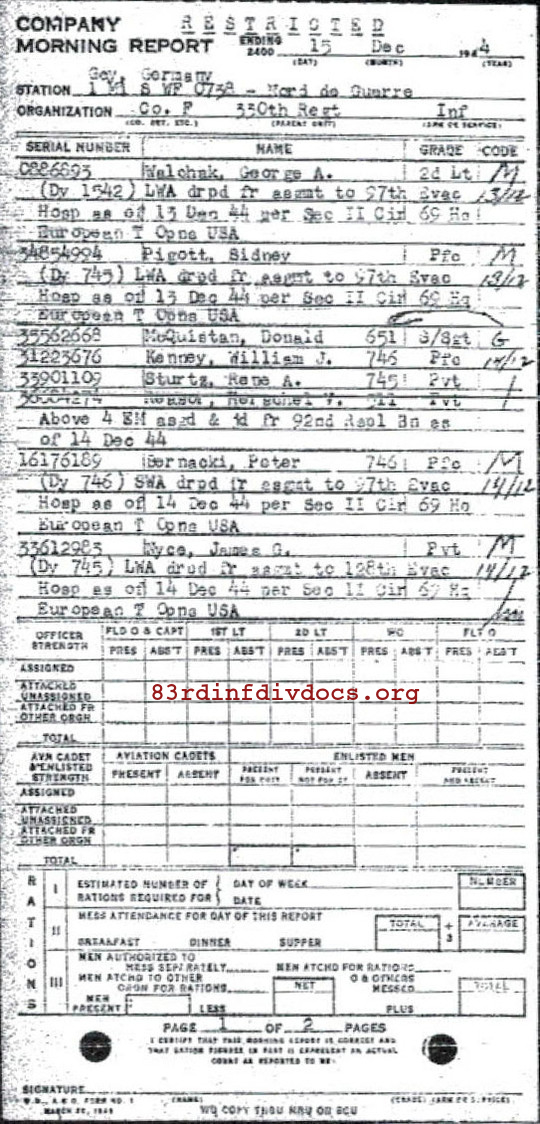 COMPANY RESTRICTED
MORNING REPORT ENDING 2400 15 Dec 1944
(DAY) (MONTH) (YEAR)
Gey, Germany
STATION 1 Mi S WF 0738 - Nord de Guerre
ORGANIZATION Co. F 330th Regt Inf
(CO. DET. ETC.) (PARENT UNIT) (ARM OR SERVICE)
SERIAL NUMBER NAME GRADE CODE
0886893 Walchak, George A. 2d Lt M
(Dy 1542) LWA drpd fr asgmt to 97th Evac 13/12
Hosp as of 13 Dec 44 per Sec II Cir 69 Hq
European T Opns USA
34854994 Pigott, Sidney Pfc M
(Dy 745) LWA drpd fr asgmt to 97th Evac 13/12
Hosp as of 13 Dec 44 per Sec II Cir 69 Hq
European T Opns USA
35562668 McQuistan, Donald 651 S/Sgt G
31223676 Kenney, William J. 746 Pfc 14/12
33901109 Sturtz, Rene A. 745 Pvt
Herschel V. 511 Pvt
Above 4 EM asgd & jd fr 92nd Repl Bn as
of 14 Dec 44
16176189 Bernacki, Peter 746 Pfc M
(Dy 746) SWA drpd fr asgmt to 97th Evac 14/12
Hosp as of 14 Dec 44 per Sec II Cir 69 Hq
European T Opns USA
33612983 Nyce, James G. Pvt M
(Dy 745) LWA drpd fr asgmt to 128th Evac 14/12
Hosp as of 14 Dec 44 per Sec II Cir 69 Hq
European T Opns USA
OFFICER STRENGTH FLD O & CAPT 1ST LT 2D LT WO FLT O
PRES ABS'T PRES ABS'T PRES ABS'T PRES ABS'T PRES ABS'T
ASSIGNED
ATTACHED UNASSIGNED
ATTACHED FR OTHER ORGN
TOTAL
83rdinfdivdocs.org
AVN CADET & ENLISTED STRENGTH AVIATION CADETS ENLISTED MEN
PRESENT ABSENT PRESENT FOR DUTY PRESENT NOT FOR DY ABSENT PRESENT AND ABSENT
ASSIGNED
ATTACHED UNASSIGNED
ATTACHED FR OTHER ORGN
TOTAL
RATIONS
I ESTIMATED NUMBER OF RATIONS REQUIRED FOR { DAY OF WEEK DATE NUMBER
II MESS ATTENDANCE FOR DAY OF THIS REPORT TOTAL ÷ 3 AVERAGE
BREAKFAST DINNER SUPPER
III MEN AUTHORIZED TO MESS SEPARATELY MEN ATCHD FOR RATIONS
MEN ATCHD TO OTHER ORGN FOR RATIONS NET O & OTHERS MESSED TOTAL
MEN PRESENT LESS PLUS
PAGE 1 OF 2 PAGES
I CERTIFY THAT THIS MORNING REPORT IS CORRECT AND
THAT RATION FIGURES IN PART II REPRESENT AN ACTUAL
COUNT AS REPORTED TO ME.
SIGNATURE
W.D., A.G.O. FORM NO. 1 (NAME) (GRADE)
MARCH 20, 1943 WD COPY THRU MRU OR ECU